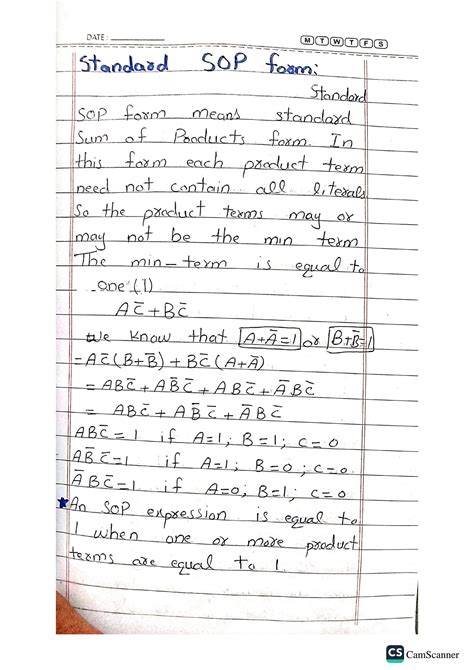 DATE :
M T W T F S
Standard SOP form:
Standard
SOP form means standard
Sum of Products form. In
this form each product term
need not contain all literals
So the product terms may or
may not be the min term
The min-term is equal to
one (1)
AC̅ + BC̅
we know that A+A̅=1 or B+B̅=1
=AC̅(B+B̅) + BC̅(A+A̅)
= ABC̅ + AB̅C̅ + ABC̅ + A̅BC̅
= ABC̅ + AB̅C̅ + A̅BC̅
ABC̅ = 1 if A=1; B=1; C=0
AB̅C̅=1 if A=1; B=0; C=0
A̅BC̅=1 if A=0; B=1; C=0
★An SOP expression is equal to
1 when one or more product
terms are equal to 1.
CS CamScanner